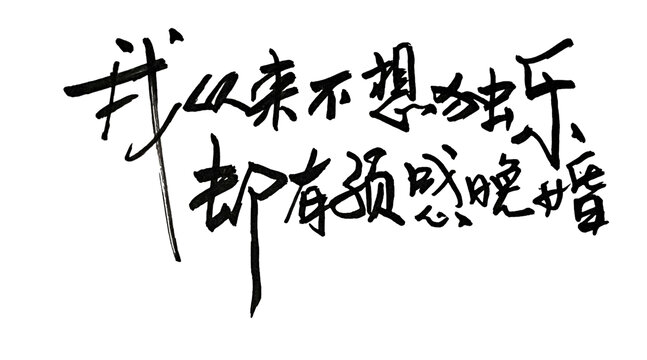 我从来不想独乐
却有预感晚婚